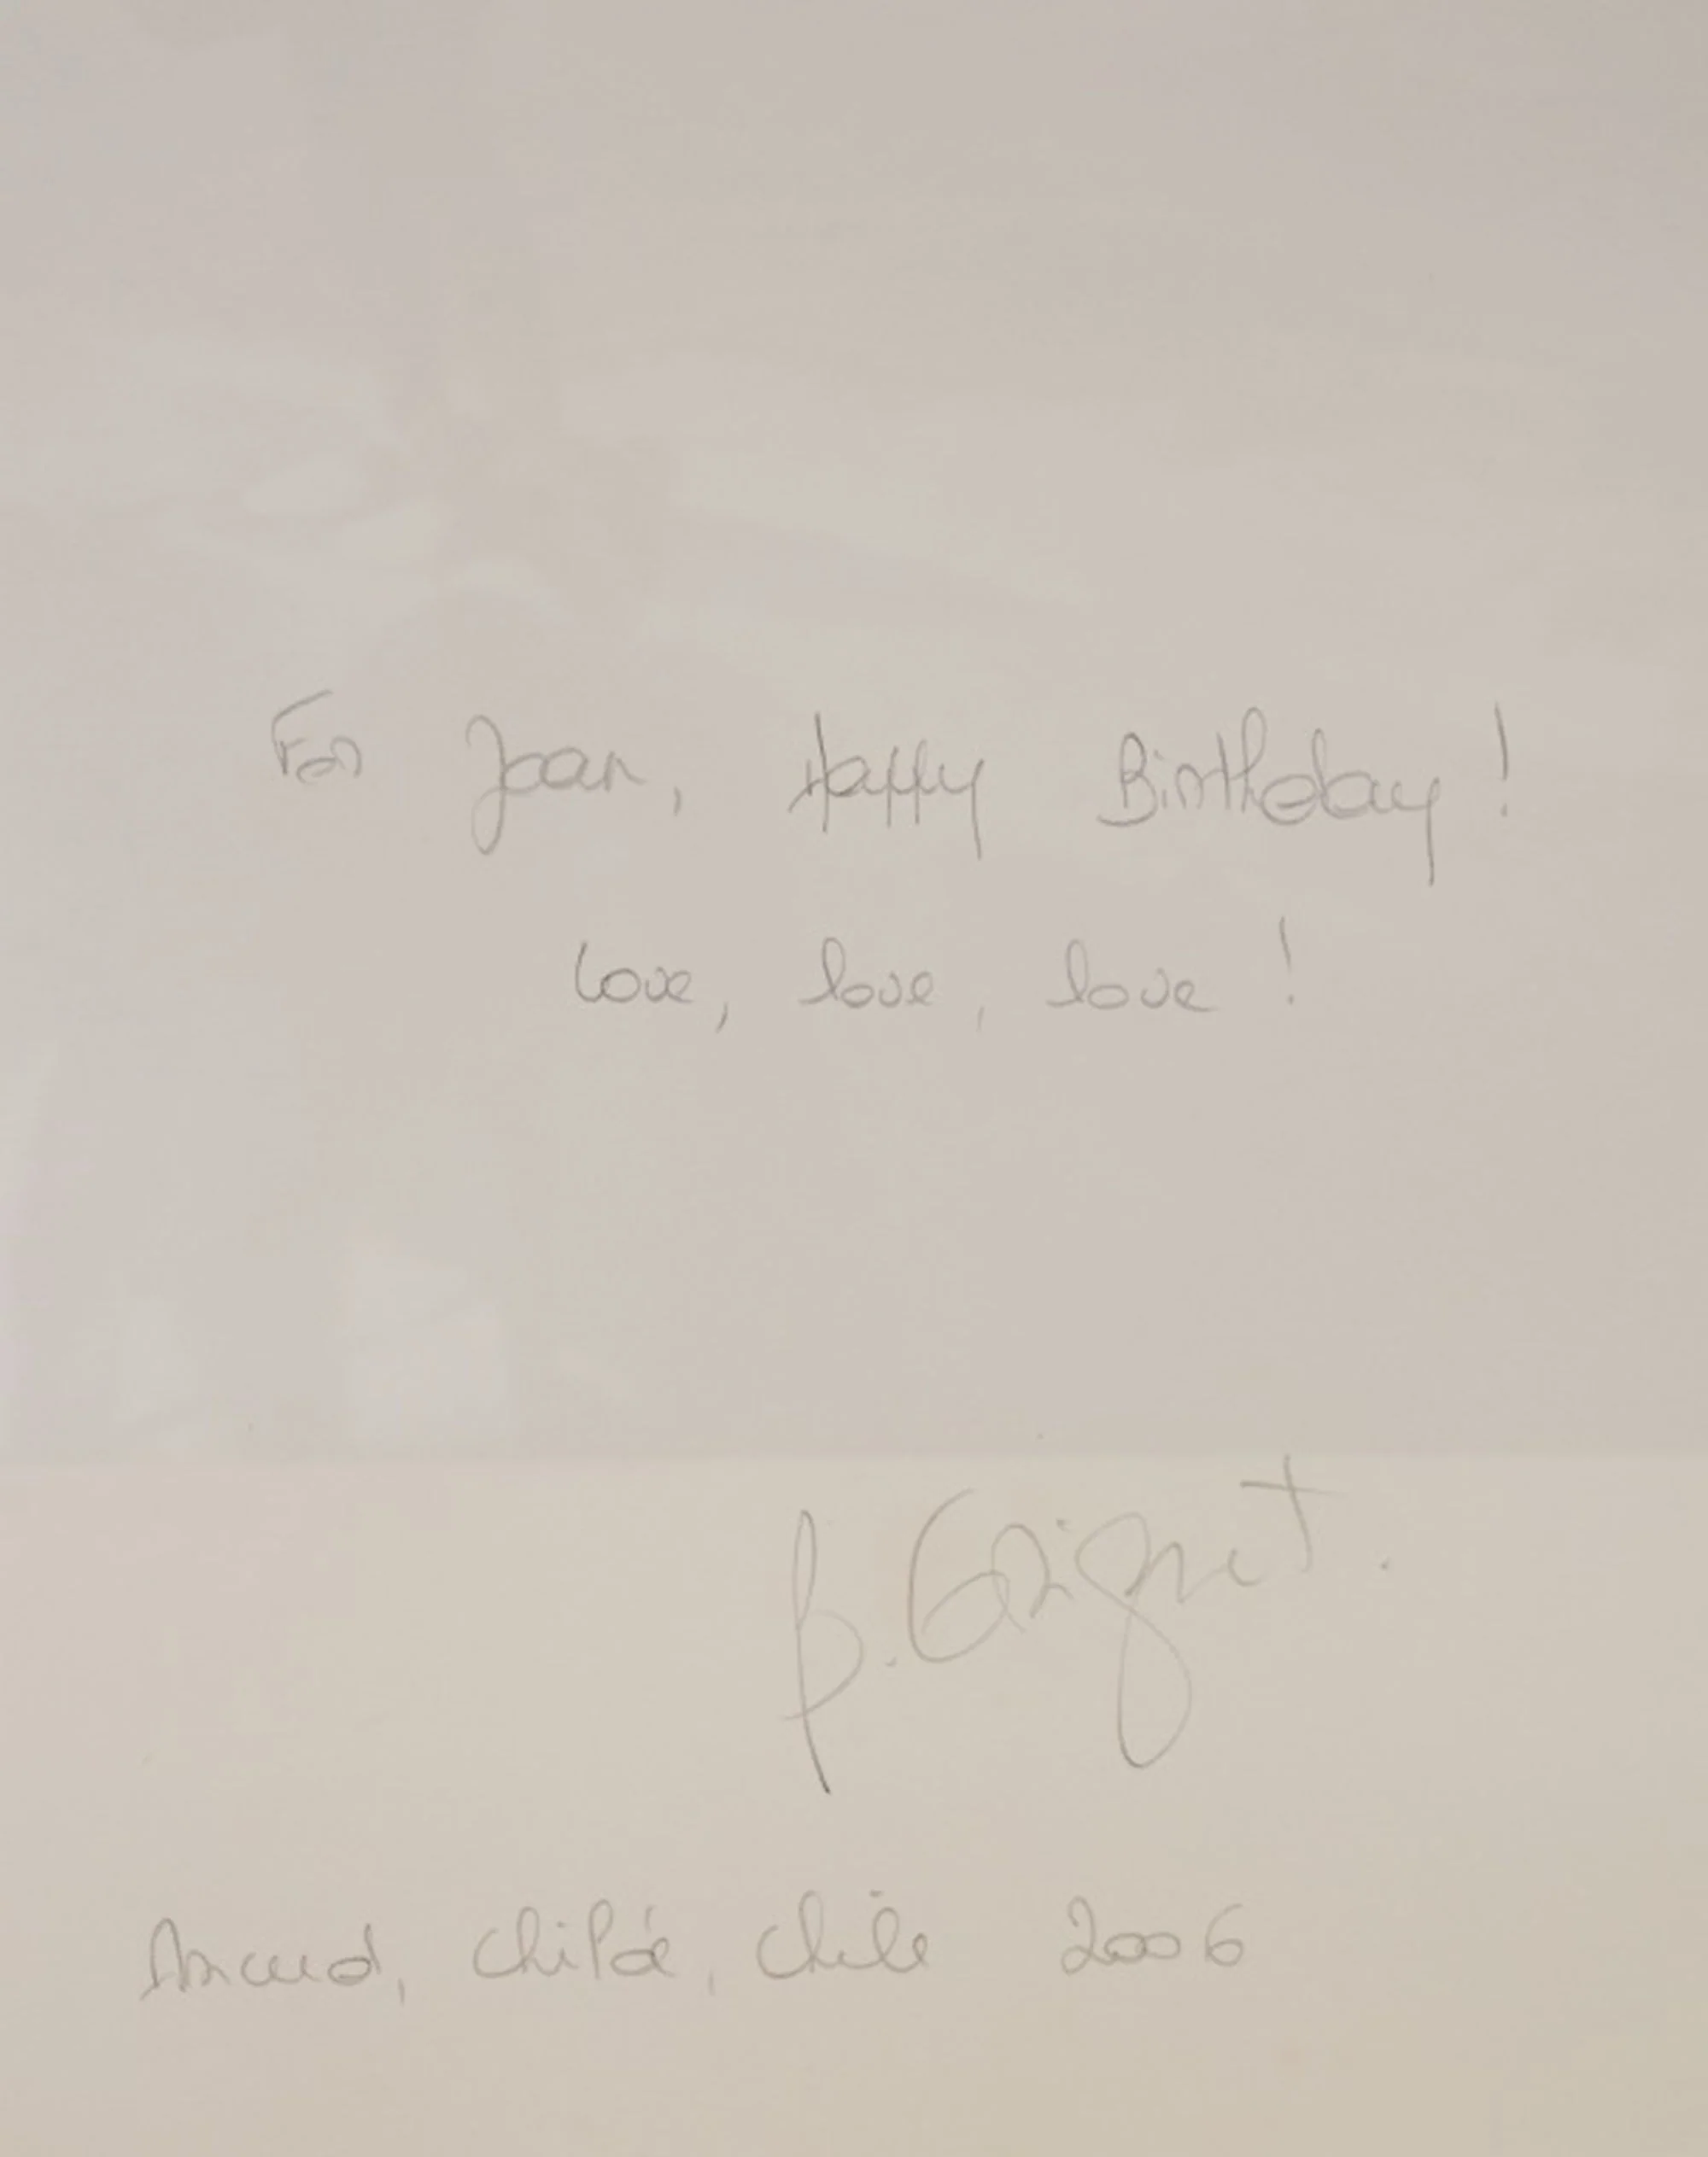 For Joan, Happy Birthday!
Love, love, love!
Ancud, Chiloé, Chile 2006